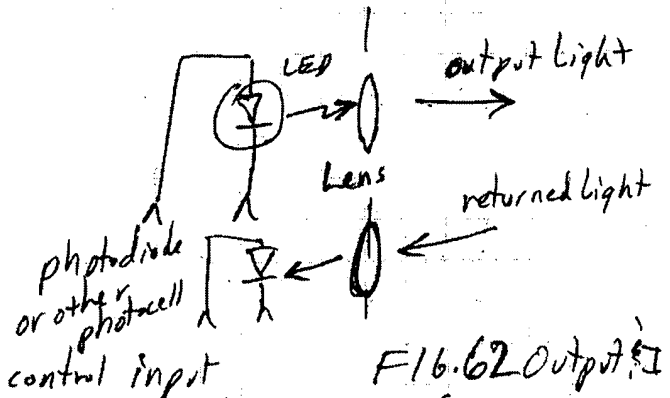 LED
output Light
Lens
returned Light
photodiode
or other
photocell
control input
F16.62 Output